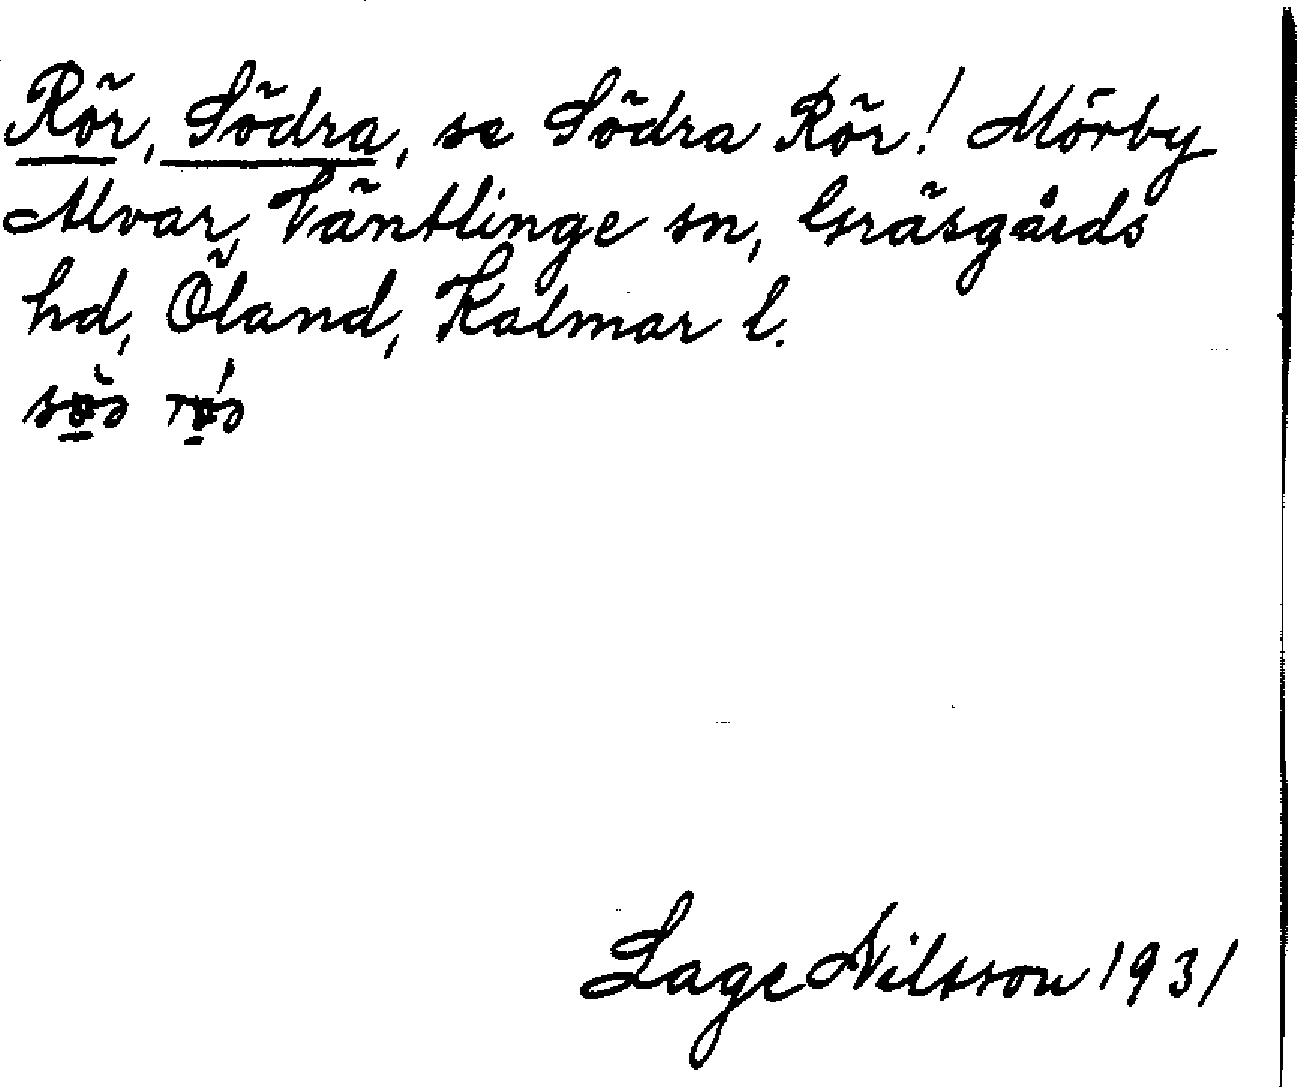 Rör, Södra, se Södra Rör! Mörby
Alvar, Väntlinge sn, Gräsgårds
hd, Öland, Kalmar l.
Lage Nilsson 1931